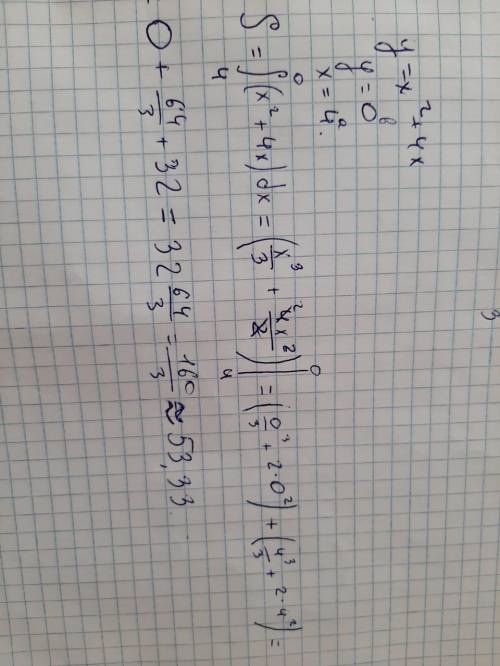 y = x² + 4x
y = 0 b
x = 4 a.
S = ∫₄⁰ (x² + 4x) dx = (x³/3 + 4x²/2) |₄⁰ = (0³/3 + 2·0²) + (4³/3 + 2·4²) =
= 0 + 64/3 + 32 = 32 64/3 = 160/3 ≈ 53,33.
3